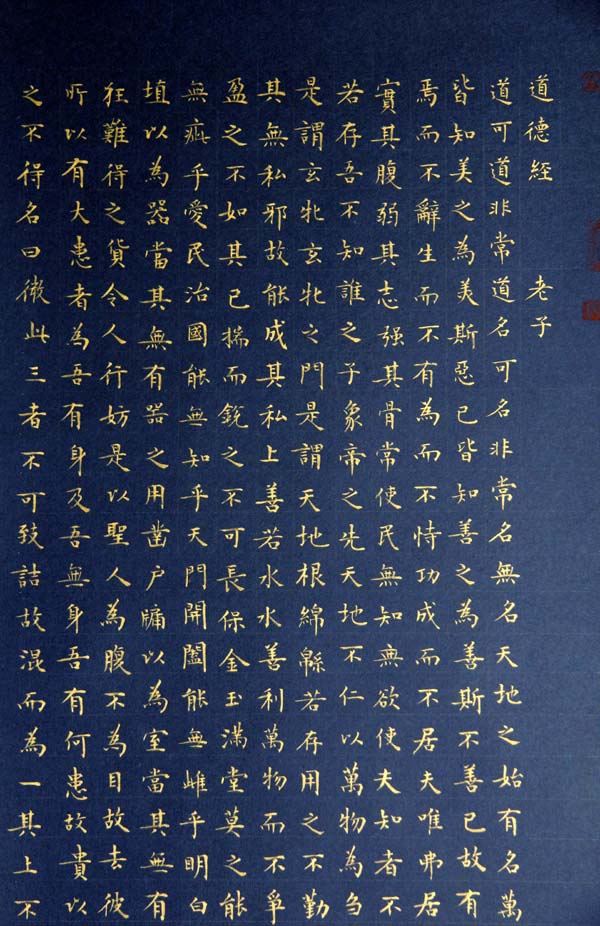 道德經 老子
道可道非常道名可名非常名無名天地之始有名萬
皆知美之為美斯惡已皆知善之為善斯不善已故有
焉而不辭生而不有為而不恃功成而不居夫唯弗居
實其腹弱其志强其骨常使民無知無欲使夫知者不
若存吾不知誰之子象帝之先天地不仁以萬物為刍
是謂玄牝玄牝之門是謂天地根綿緜若存用之不勤
其無私邪故能成其私上善若水水善利萬物而不爭
盈之不如其已揣而銳之不可長保金玉滿堂莫之能
無疵乎愛民治國能無知乎天門開闔能無雌乎明白
埴以為器當其無有器之用鑿戶牖以為室當其無有
狂難得之貨令人行妨是以聖人為腹不為目故去彼
所以有大患者為吾有身及吾無身吾有何患故貴以
之不得名曰微此三者不可致詰故混而為一其上不